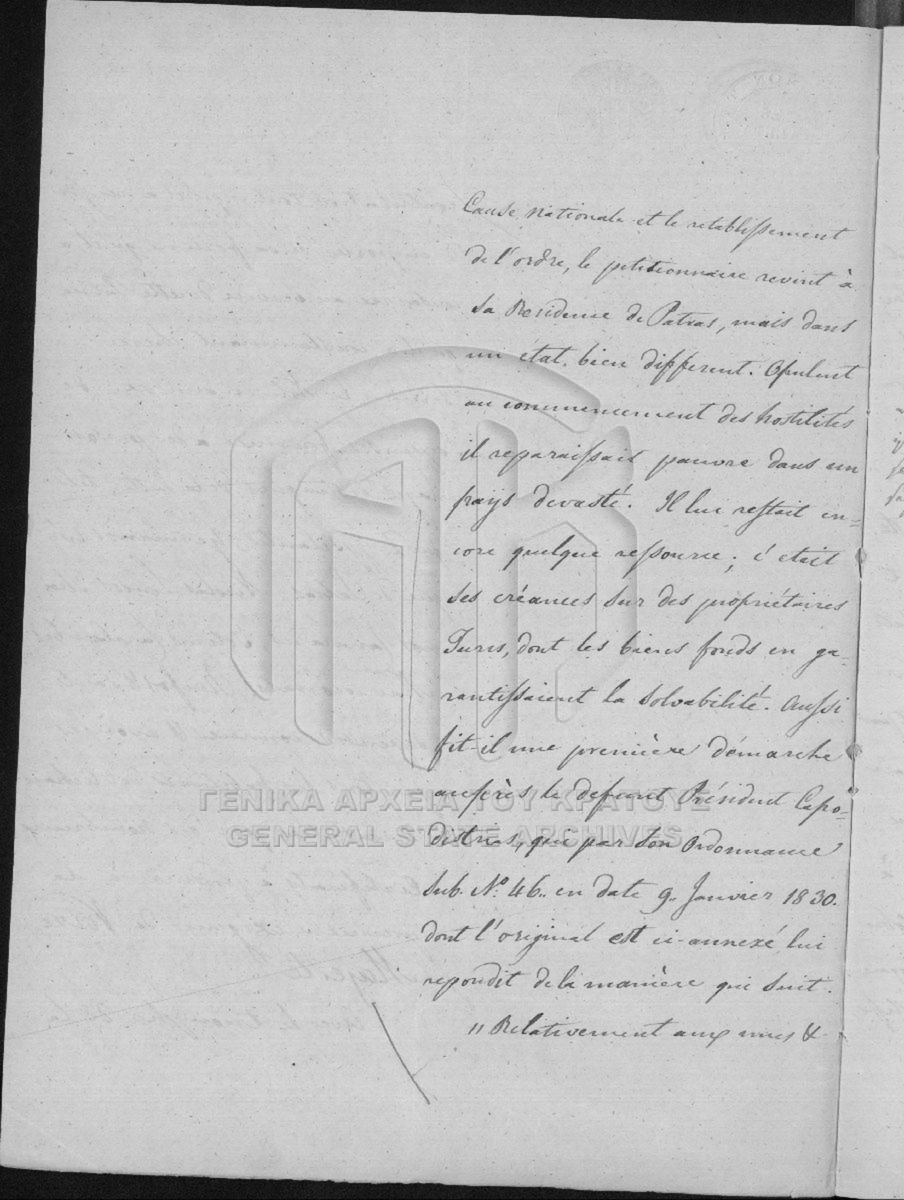 Cause nationale et le retablissement
de l'ordre, le petitionnaire revint à
sa Residence de Patras, mais dans
un état bien different. Opulent
au commencement des hostilités
il reparaissait pauvre dans un
pays devasté. Il lui restait en-
core quelque ressource; c'etait
ses créances sur des propriétaires
Turcs, dont les biens fonds en ga-
rantissaient la solvabilité. Aussi
fit-il une première démarche
auprès le defunt Président Capo-
distrias, qui par son Ordonnance
sub. Nº. 46.. en date 9. Janvier 1830.
dont l'original est ci-annexé, lui
repondit de la manière qui suit.
„ Relativement aux &
ΓΕΝΙΚΑ ΑΡΧΕΙΑ ΤΟΥ ΚΡΑΤΟΥΣ
GENERAL STATE ARCHIVES